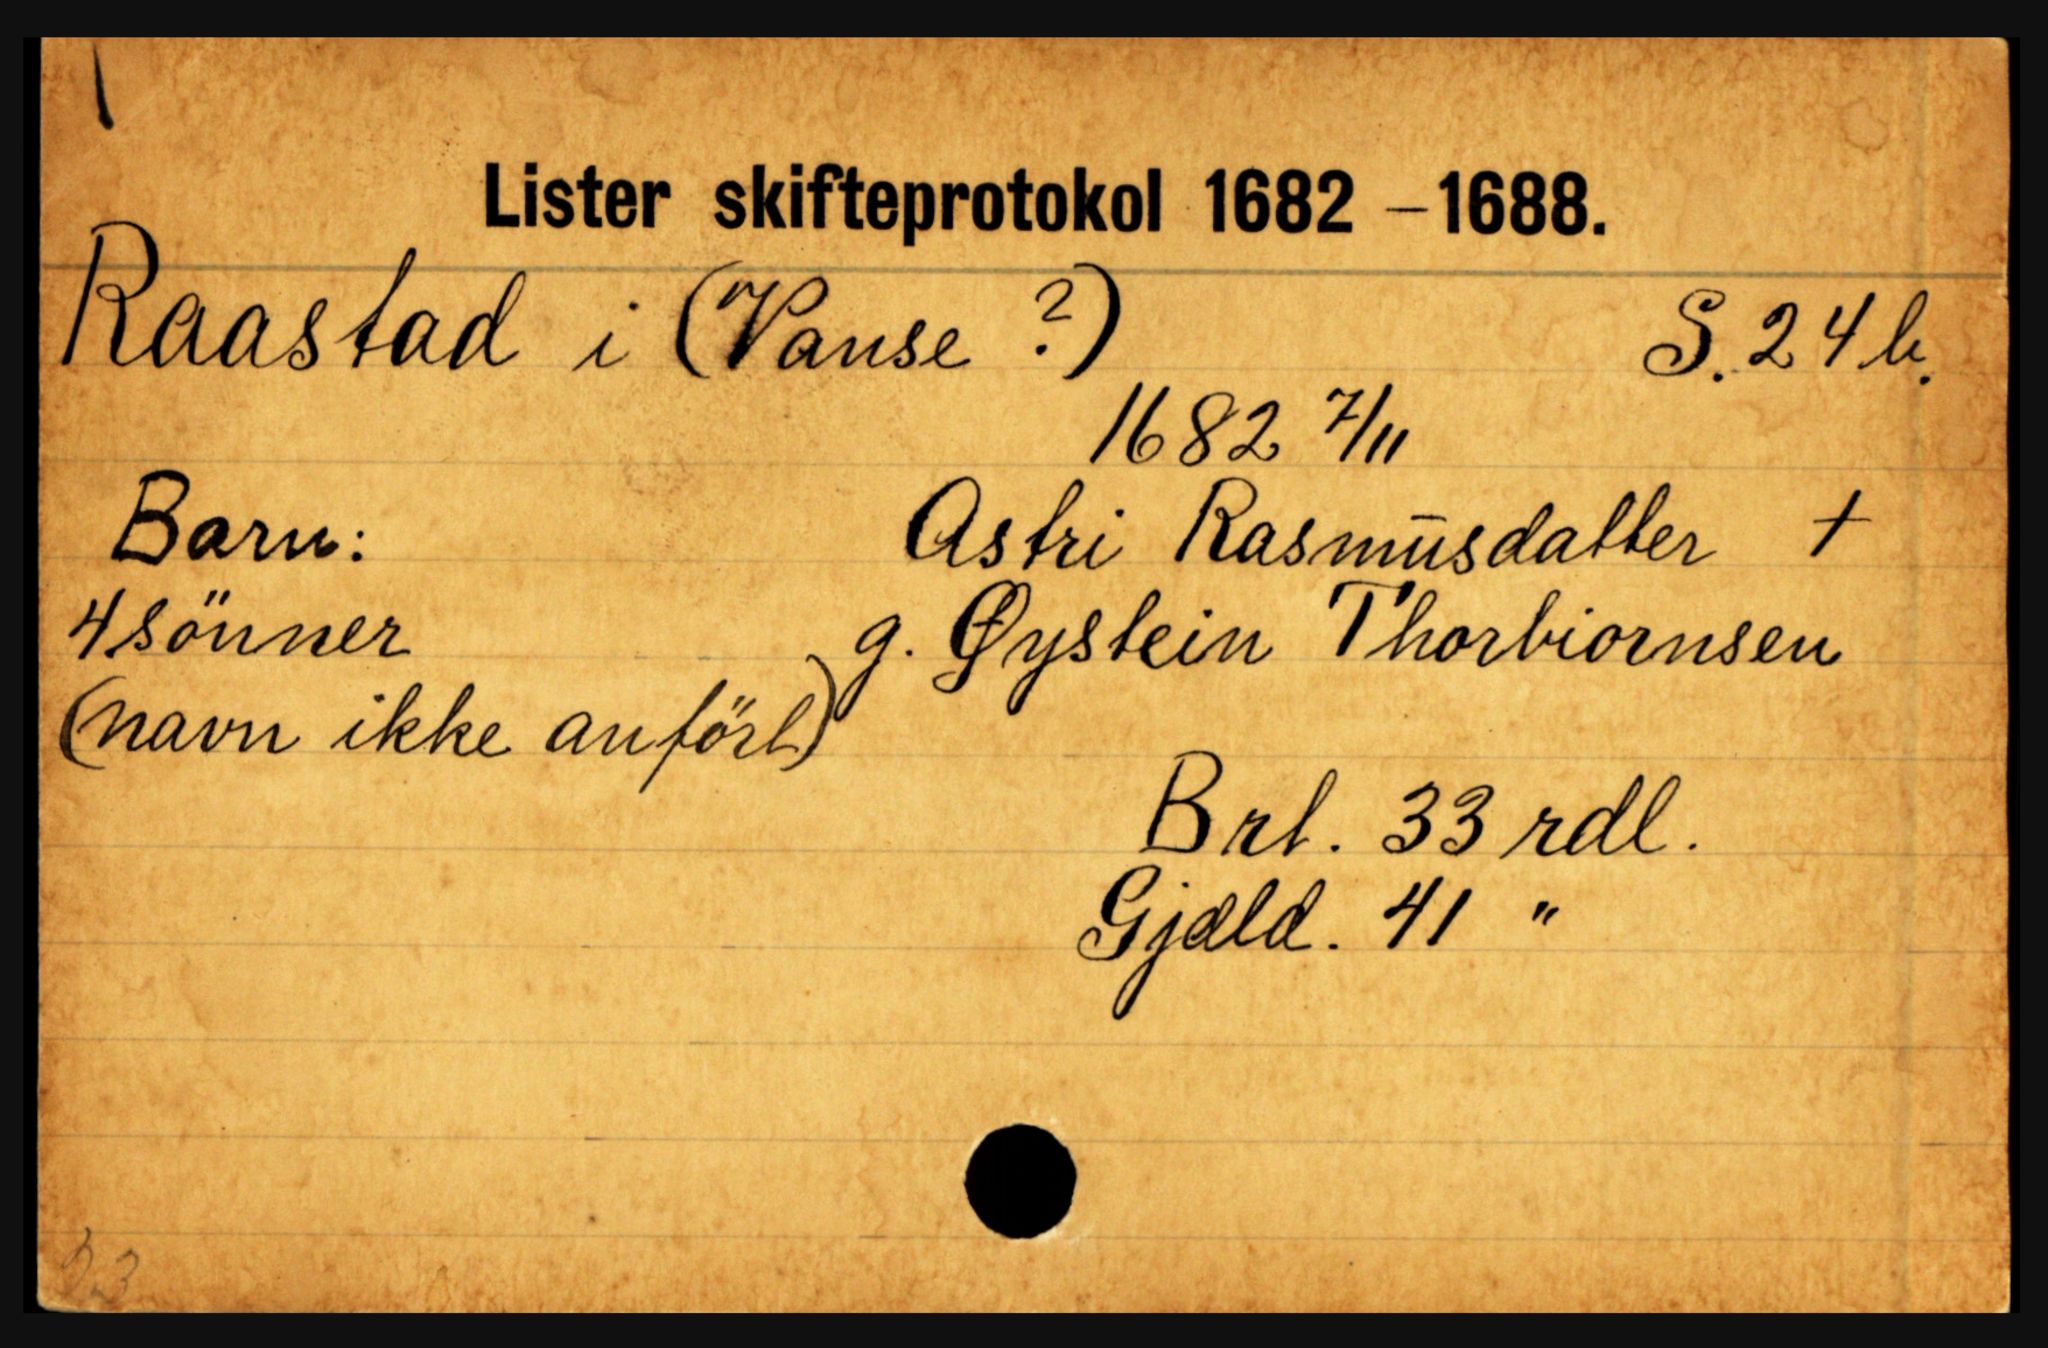 Lister skifteprotokol 1682 – 1688.
Raastad i (Vanse ?) S. 24 b.
1682 7/11
Barn: Astri Rasmusdatter †
4 sönner g. Øystein Thorbiornsen
(navn ikke anfört)
Brt. 33 rdl.
Gjæld. 41 "